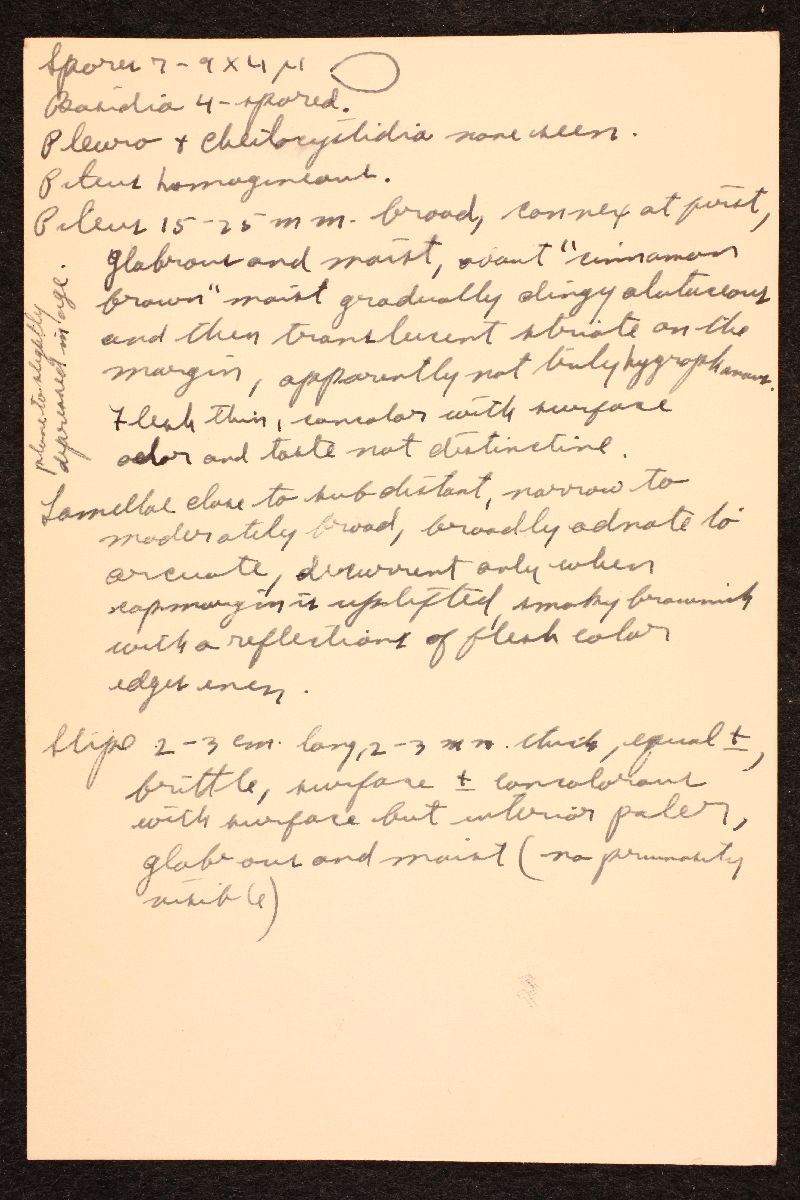 Spores 7-9 x 4 µ
Basidia 4-spored.
Pleuro + Cheilocystidia none seen.
Pileus homogineous.
Pileus 15-25 mm. broad, convex at first,
plane to slightly
depressed in age.
glabrous and moist, about "cinnamon
brown" moist gradually dingy alutaceous
and then translucent striate on the
margin, apparently not truly hygrophanous.
Flesh thin, concolor with surface
odor and taste not distinctive.
Lamellae close to subdistant, narrow to
moderately broad, broadly adnate to
arcuate, decurrent only when
cap margin is uplifted, smoky brownish
with a reflections of flesh color
edges even.
Stipe 2-3 cm. long, 2-3 mm. thick, equal ±,
brittle, surface ± concolorous
with surface but interior paler,
glabrous and moist (no pruinosity
visible)